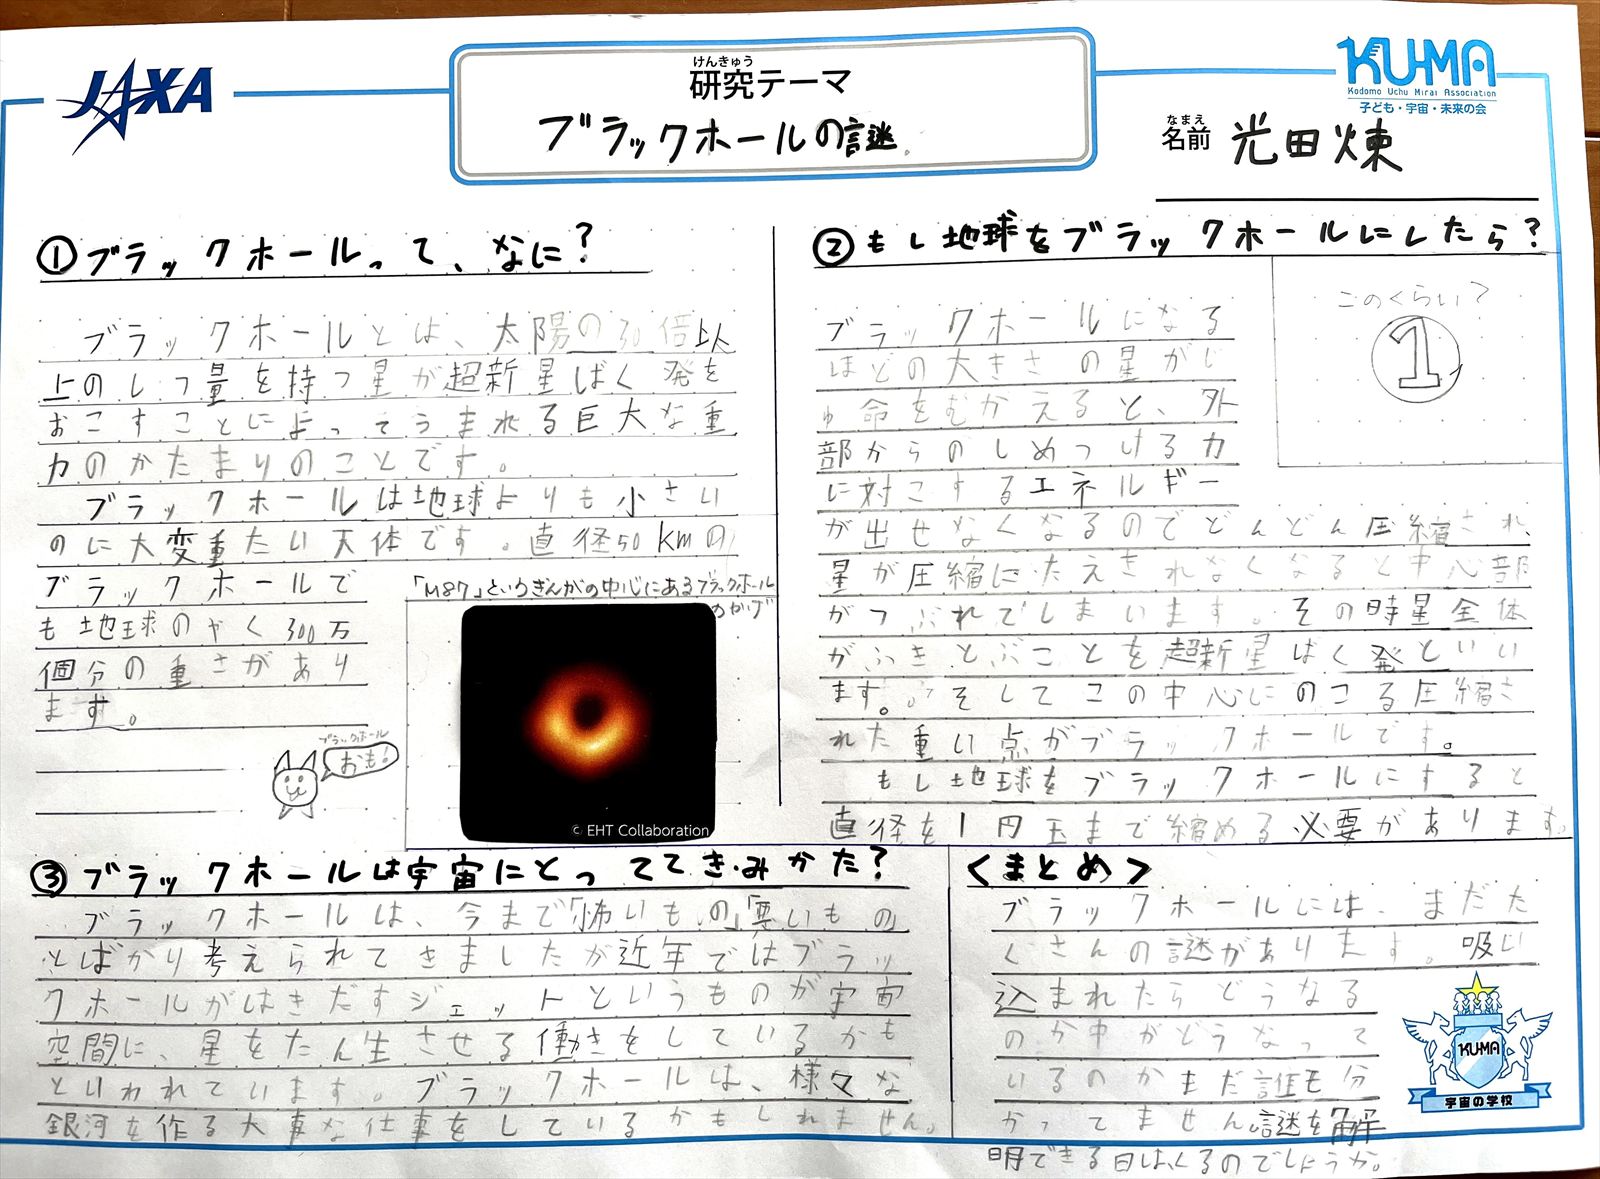 JAXA
けんきゅう
研究テーマ
ブラックホールの謎
KU-MA
Kodomo Uchu Mirai Association
子ども・宇宙・未来の会
なまえ
名前 光田煉
①ブラックホールって、なに?
ブラックホールとは、太陽の30倍以
上のしつ量を持つ星が超新星ばく発を
おこすことによってうまれる巨大な重
力のかたまりのことです。
ブラックホールは地球よりも小さい
のに大変重たい天体です。直径50kmの
ブラックホールで
も地球のやく300万
個分の重さがあり
ます。
「M87」というぎんがの中心にあるブラックホール
のかげ
© EHT Collaboration
ブラックホール
おも!
②もし地球をブラックホールにしたら?
このくらい?
1
ブラックホールになる
ほどの大きさの星がじ
ゅ命をむかえると、外
部からのしめつける力
に対こするエネルギー
が出せなくなるのでどんどん圧縮され、
星が圧縮にたえきれなくなると中心部
がつぶれてしまいます。その時星全体
がふきとぶことを超新星ばく発といい
ます。そしてこの中心にのこる圧縮さ
れた重い点がブラックホールです。
もし地球をブラックホールにすると
直径を1円玉まで縮める必要があります。
③ブラックホールは宇宙にとっててき・みかた?
ブラックホールは、今まで「怖いもの」「悪いもの」
とばかり考えられてきましたが近年ではブラッ
クホールがはきだすジェットというものが宇宙
空間に、星をたん生させる働きをしているかも
といわれています。ブラックホールは、様々な
銀河を作る大事な仕事をしているかもしれません。
<まとめ>
ブラックホールには、まだた
くさんの謎があります。吸い
込まれたらどうなる
のか中がどうなって
いるのかまだ誰も分
かってません謎を解
明できる日はくるのでしょうか。
KU-MA
宇宙の学校